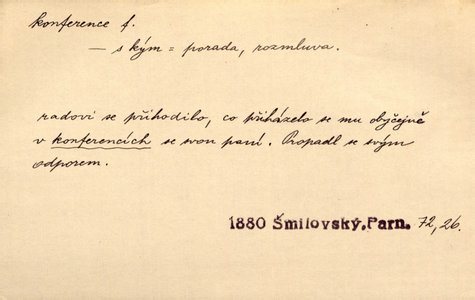 konference f.
— s kým = porada, rozmluva.
radovi se přihodilo, co přiházelo se mu obyčejně
v konferencích se svou paní. Propadl se svým
odporem.
1880 Šmilovský, Parn. 72, 26.